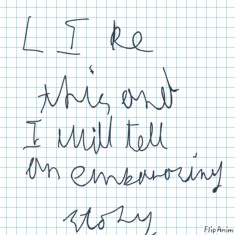 LIke
this and
I will tell
an embarorsing
story
FlipAnim